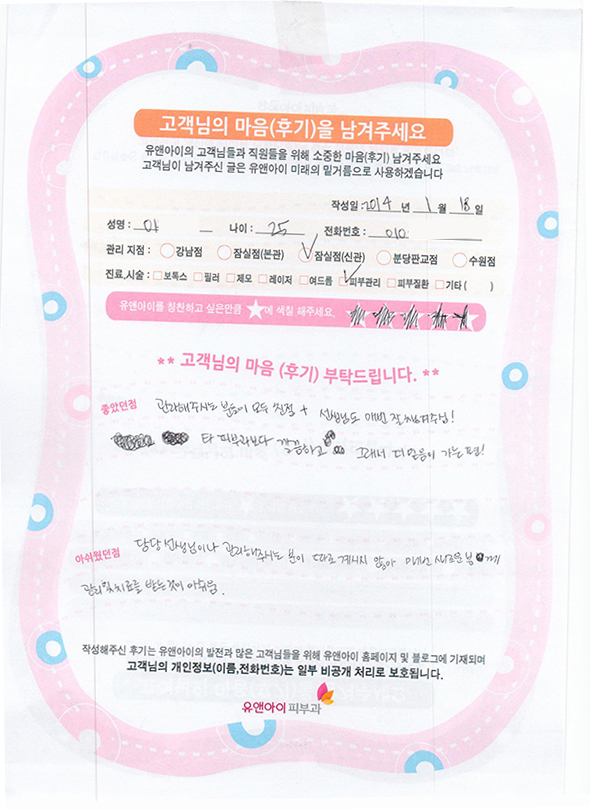 고객님의 마음(후기)을 남겨주세요
유앤아이의 고객님들과 직원들을 위해 소중한 마음(후기) 남겨주세요
고객님이 남겨주신 글은 유앤아이 미래의 밑거름으로 사용하겠습니다
작성일 : 2014 년 1 월 18 일
성명 : 이 나이 : 25 전화번호 : 010
관리 지점 : 강남점 잠실점(본관) 잠실점(신관) 분당판교점 수원점
진료,시술 : 보톡스 필러 제모 레이저 여드름 피부관리 피부질환 기타 ( )
유앤아이를 칭찬하고 싶은만큼 ★에 색칠 해주세요.
** 고객님의 마음 (후기) 부탁드립니다. **
좋았던점 관리해주시는 분들이 모두 친절 + 선생님도 매번 잘 챙겨주심!
타 피부과보다 깔끔하고 그래서 더 믿음이 가는 편!
아쉬웠던점 담당 선생님이나 관리해주시는 분이 따로 계시지 않아 매번 새로운 분께
관리 및 치료를 받는것이 아쉬움.
작성해주신 후기는 유앤아이의 발전과 많은 고객님들을 위해 유앤아이 홈페이지 및 블로그에 기재되며
고객님의 개인정보(이름,전화번호)는 일부 비공개 처리로 보호됩니다.
유앤아이 피부과